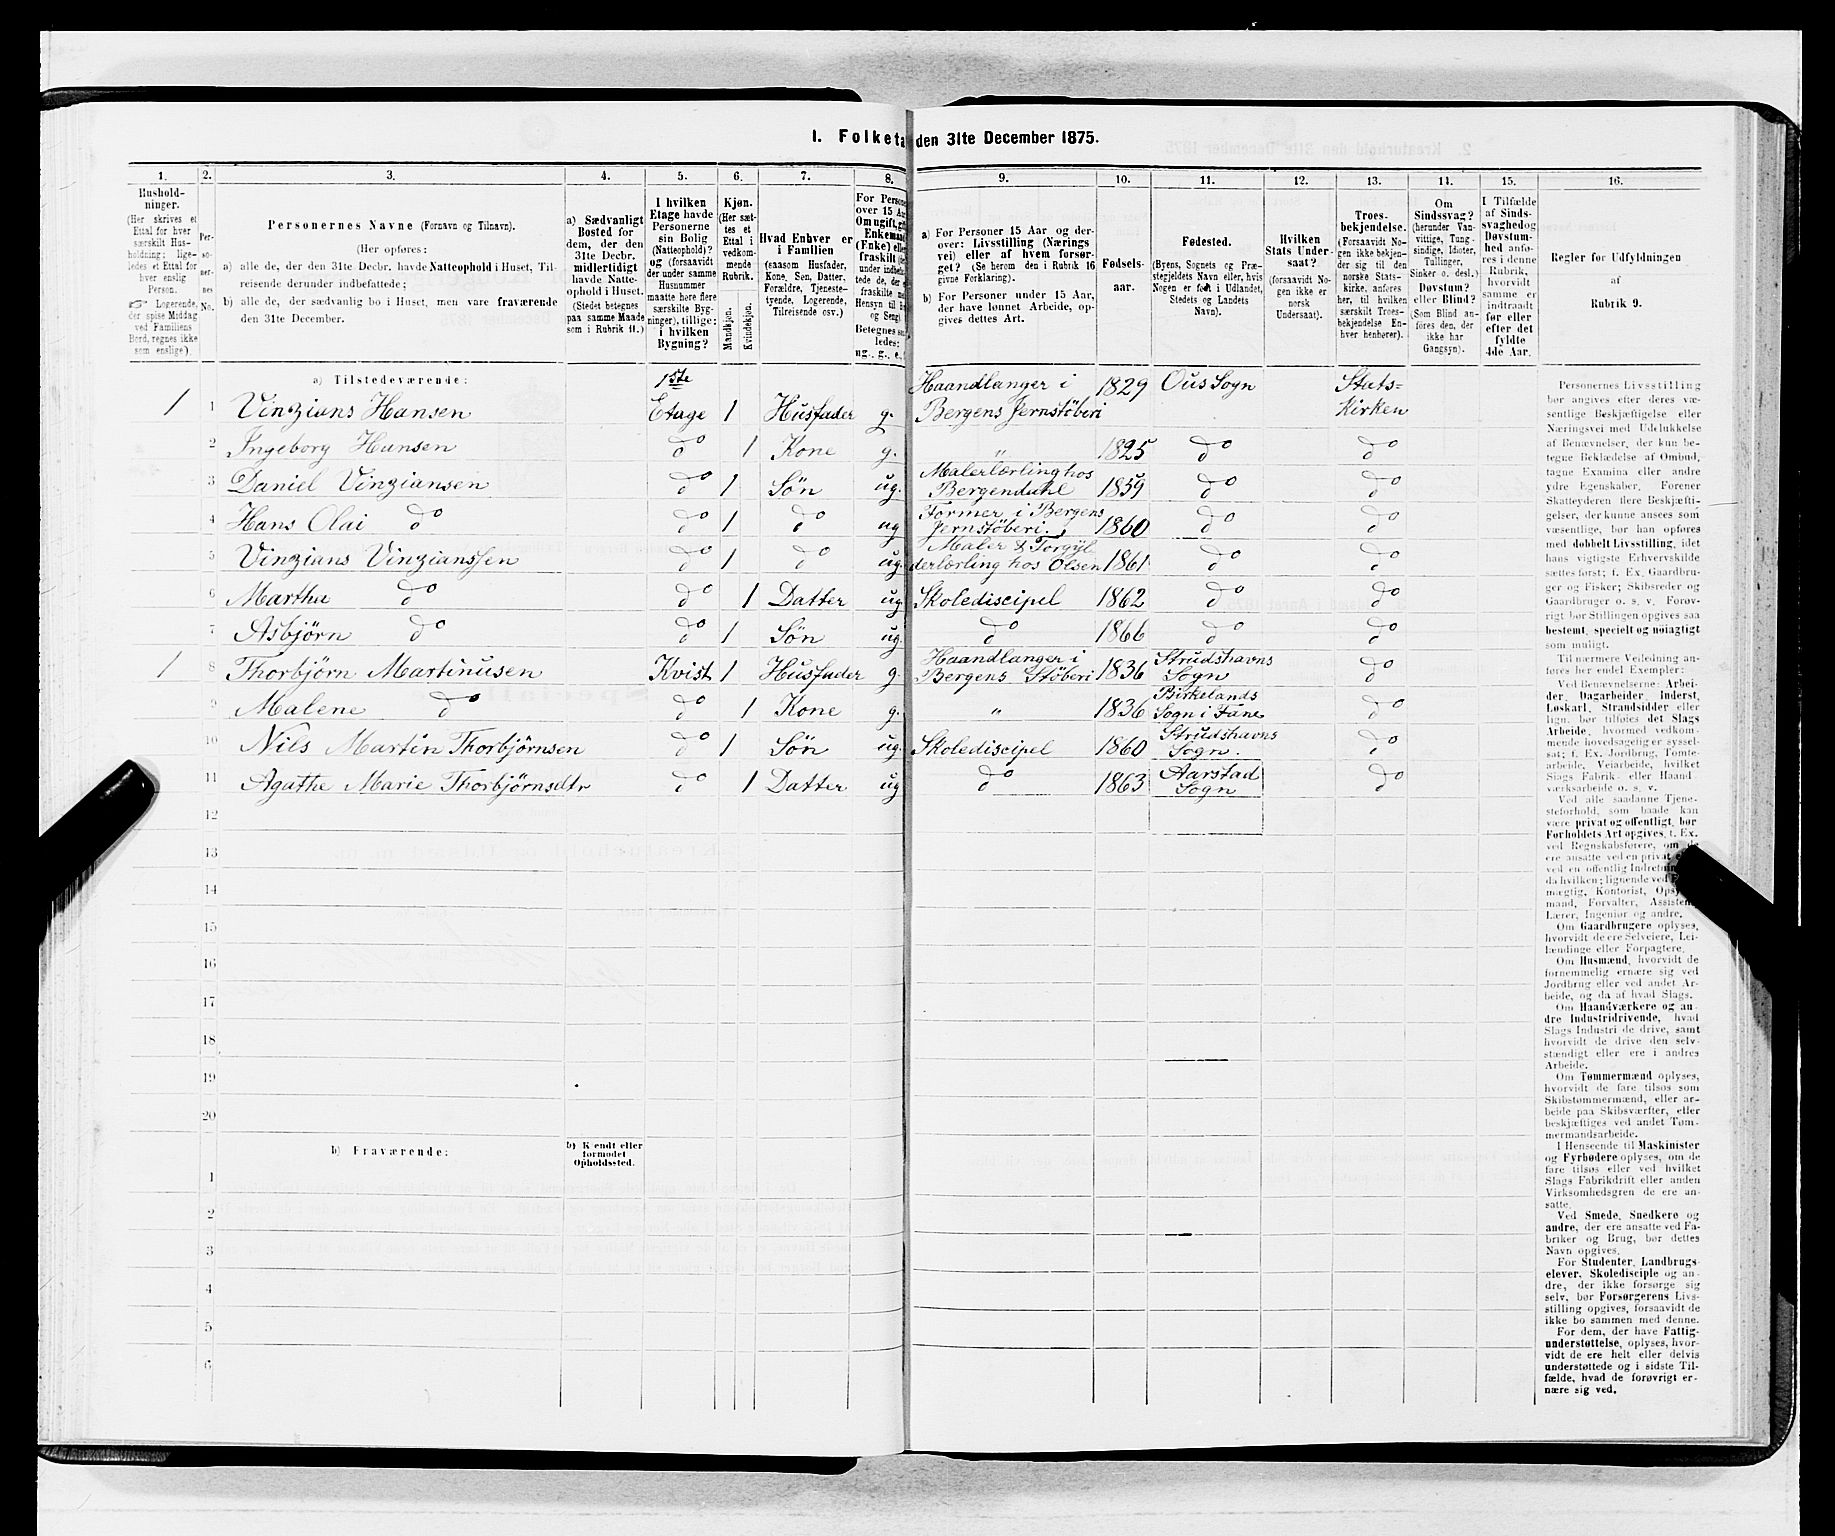 I. Folketa den 31te December 1875.
1. 2. 3. 4. 5. 6. 7. 8. 9. 10. 11. 12. 13. 14. 15. 16.
Hushold-
ninger.
(Her skrives et
Ettal for hver
særskilt Hus-
holdning; lige-
ledes et Ettal for
hver enslig
Person.
☞ Logerende,
der spise Middag
ved Familiens
Bord, regnes ikke
som enslige).
Per-
so-
ner-
nes
No.
Personernes Navne (Fornavn og Tilnavn).
(Her opføres:
a) alle de, der den 31te Decbr. havde Natteophold i Huset, Til-
reisende derunder indbefattede;
b) alle de, der sædvanlig bo i Huset, men vare fraværende
den 31te December.
a) Sædvanligt
Bosted for
dem, der den
31te Decbr.
midlertidigt
havde Natte-
ophold i Huset.
(Stedet betegnes
paa samme Maade
som i Rubrik 11.)
I hvilken
Etage havde
Personerne
sin Bolig
(Natteophold)?
og (forsaavidt
der under samme
Husnummer
maatte høre flere
særskilte Byg-
ninger), tillige:
i hvilken
Bygning?
Kjøn.
(Her sæt-
tes et
Ettal i
vedkom-
mende
Rubrik.
Mandkjøn.
Kvindekjøn.
Hvad Enhver er
i Familien
(saasom Husfader,
Kone, Søn, Datter,
Forældre, Tjeneste-
tyende, Logerende,
Tilreisende osv.)
For Persone
over 15 Aa
Om ugift, gif
Enkeman
(Enke) elle
fraskilt
under indbefat-
tede de, der
fraskilte
Hensyn til
og Seng)
Betegnes
ledes:
ug., g., e.,
a) For Personer 15 Aar og der-
over: Livsstilling (Nærings
vei) eller af hvem forsør-
get? (Se herom den i Rubrik 16
givne Forklaring).
b) For Personer under 15 Aar,
der have lønnet Arbeide, op-
gives dettes Art.
Fødsels-
aar.
Fødested.
(Byens, Sognets og Præ-
stegjeldets Navn eller, hvis
Nogen er født i Udlandet,
Stedets og Landets
Navn).
Hvilken
Stats Under-
saat?
(forsaavidt No-
gen ikke er
norsk
Undersaat).
Troes-
bekjendelse.
(Forsaavidt No-
gen ikke bekjen-
der sig til den
norske Stats-
kirke, anføres
her, til hvilken
særskilt Troes-
bekjendelse En-
hver henhører).
Om
Sindssvag?
(herunder Van-
vittige, Tung-
sindige, Idioter,
Tullinger,
Sinker o. desl.)
Døvstum?
eller Blind?
(Som Blind an-
føres den, der
ikke har
Gangsyn).
I Tilfælde
af Sinds-
svaghed og
Døvstum-
hed anfø-
res i denne
Rubrik,
hvorvidt
samme er
indtraadt
før eller
efter det
fyldte
4de Aar.
Regler for Udfyldningen
af
Rubrik 9.
a) Tilstedeværende:
1 1 Vinzians Hansen 1ste Etage 1 Husfader g. Haandlanger i Bergens Jernstøberi 1829 Ous Sogn Stats-Kirken
2 Ingeborg Hansen do 1 Kone g. " 1825 do do
3 Daniel Vinziansen do 1 Søn ug. Malerlærling hos Bergendahl 1859 do do
4 Hans Olai do do 1 do ug Former i Bergens Jernstøberi. 1860 do do
5 Vinzians Vinzianssen do 1 do ug. Maler & Forgyl derlærling hos Olsen 1861 do do
6 Martha do do 1 Datter ug Skolediscipel 1862 do do
7 Asbjørn do do 1 Søn ug. do 1866 do do
1 8 Thorbjørn Martinusen Kvist 1 Husfader g. Haandlanger i Bergens Støberi 1836 Strudshavns Sogn do
9 Malene do do 1 Kone g. " 1836 Birkelands Sogn i Fane do
10 Nils Martin Thorbjørnsen do 1 Søn ug. Skolediscipel 1860 Strudshavns Sogn. do
11 Agathe Marie Thorbjørnsdtr do 1 Datter ug do 1863 Aarstad Sogn do
12
13
14
15
16
17
18
19
20
b) Fraværende:
b) Kjendt eller
formodet
Opholdssted.
1
2
3
4
5
6
Personernes Livsstilling
bør angives efter deres væ-
sentlige Beskjæftigelse eller
Næringsvei med Udelukkelse
af Benævnelser, der kun be-
tegne Beklædelse af Ombud,
tagne Examina eller andre
ydre Egenskaber. Forener
Skatteyderen flere Beskjæfti-
gelser, der kunne ansees som
væsentlige, bør han opføres
med dobbelt Livsstilling, idet
hans vigtigste Erhvervskilde
sættes først; f. Ex. Gaardbru-
ger og Fisker; Skibsreder og
Gaardbruger o. s. v. Forøv-
rigt bør Stillingen opgives saa
bestemt, specielt og nøiagtigt
som muligt.
Til nærmere Veiledning an-
føres her endel Exempler:
Ved Benævnelserne Arbei-
der, Dagarbeider, Inderst,
Løskarl, Strandsidder eller
lign. bør tilføies det Slags
Arbeide, hvormed vedkom-
mende hovedsagelig er syssel-
sat; f. Ex. Jordbrug, Tomte-
arbeide, Veiarbeide, hvilket
Slags Fabrik- eller Haand-
værksarbeide o. s. v.
Ved alle saadanne Tjene-
steforhold, som baade kan
være privat og offentligt, bør
Forholdets Art opgives, f. Ex.
ved Regnskabsførere, om de
ere ansatte ved en privat e
ved en offentlig Indretnin
da hvilken; lignende ved
mægtig, Kontorist, Opsy
mand, Forvalter, Assisten
Lærer, Ingeniør og andre.
Om Gaardbrugere oplyses,
hvorvidt de ere Selveiere, Lei-
lændinge eller Forpagtere.
Om Husmænd, hvorvidt de
fornemmelig ernære sig ved
Jordbrug eller ved andet Ar-
beide, og da af hvad Slags.
Om Haandværkere og an-
dre Industridrivende, hvad
Slags Industri de drive, samt
hvorvidt de drive den selv-
stændigt eller ere i andres
Arbeide.
Om Tømmermænd oplyses,
hvorvidt de fare tilsøs som
Skibstømmermænd, eller ar-
beide paa Skibsværfter, eller
beskjæftiges ved andet Tøm-
mermandsarbeide.
I Henseende til Maskinister
og Fyrbødere oplyses, om de
fare tilsøs eller ved hvilket
Slags Fabrikdrift eller anden
Virksomhedsgren de ere an-
satte.
Ved Smede, Snedkere og
andre, der ere ansatte ved Fa-
briker og Brug, bør dettes
Navn opgives.
For Studenter, Landbrugs-
elever, Skolediscipler og an-
dre, der ikke forsørge sig
selv, bør Forsørgerens Livs-
stilling opgives, forsaavidt de
ikke bo sammen med denne.
For dem, der have Fattig-
understøttelse, oplyses, hvor-
vidt de ere helt eller delvis
understøttede og i sidste Til-
fælde, hvad de forøvrigt er-
nære sig ved.